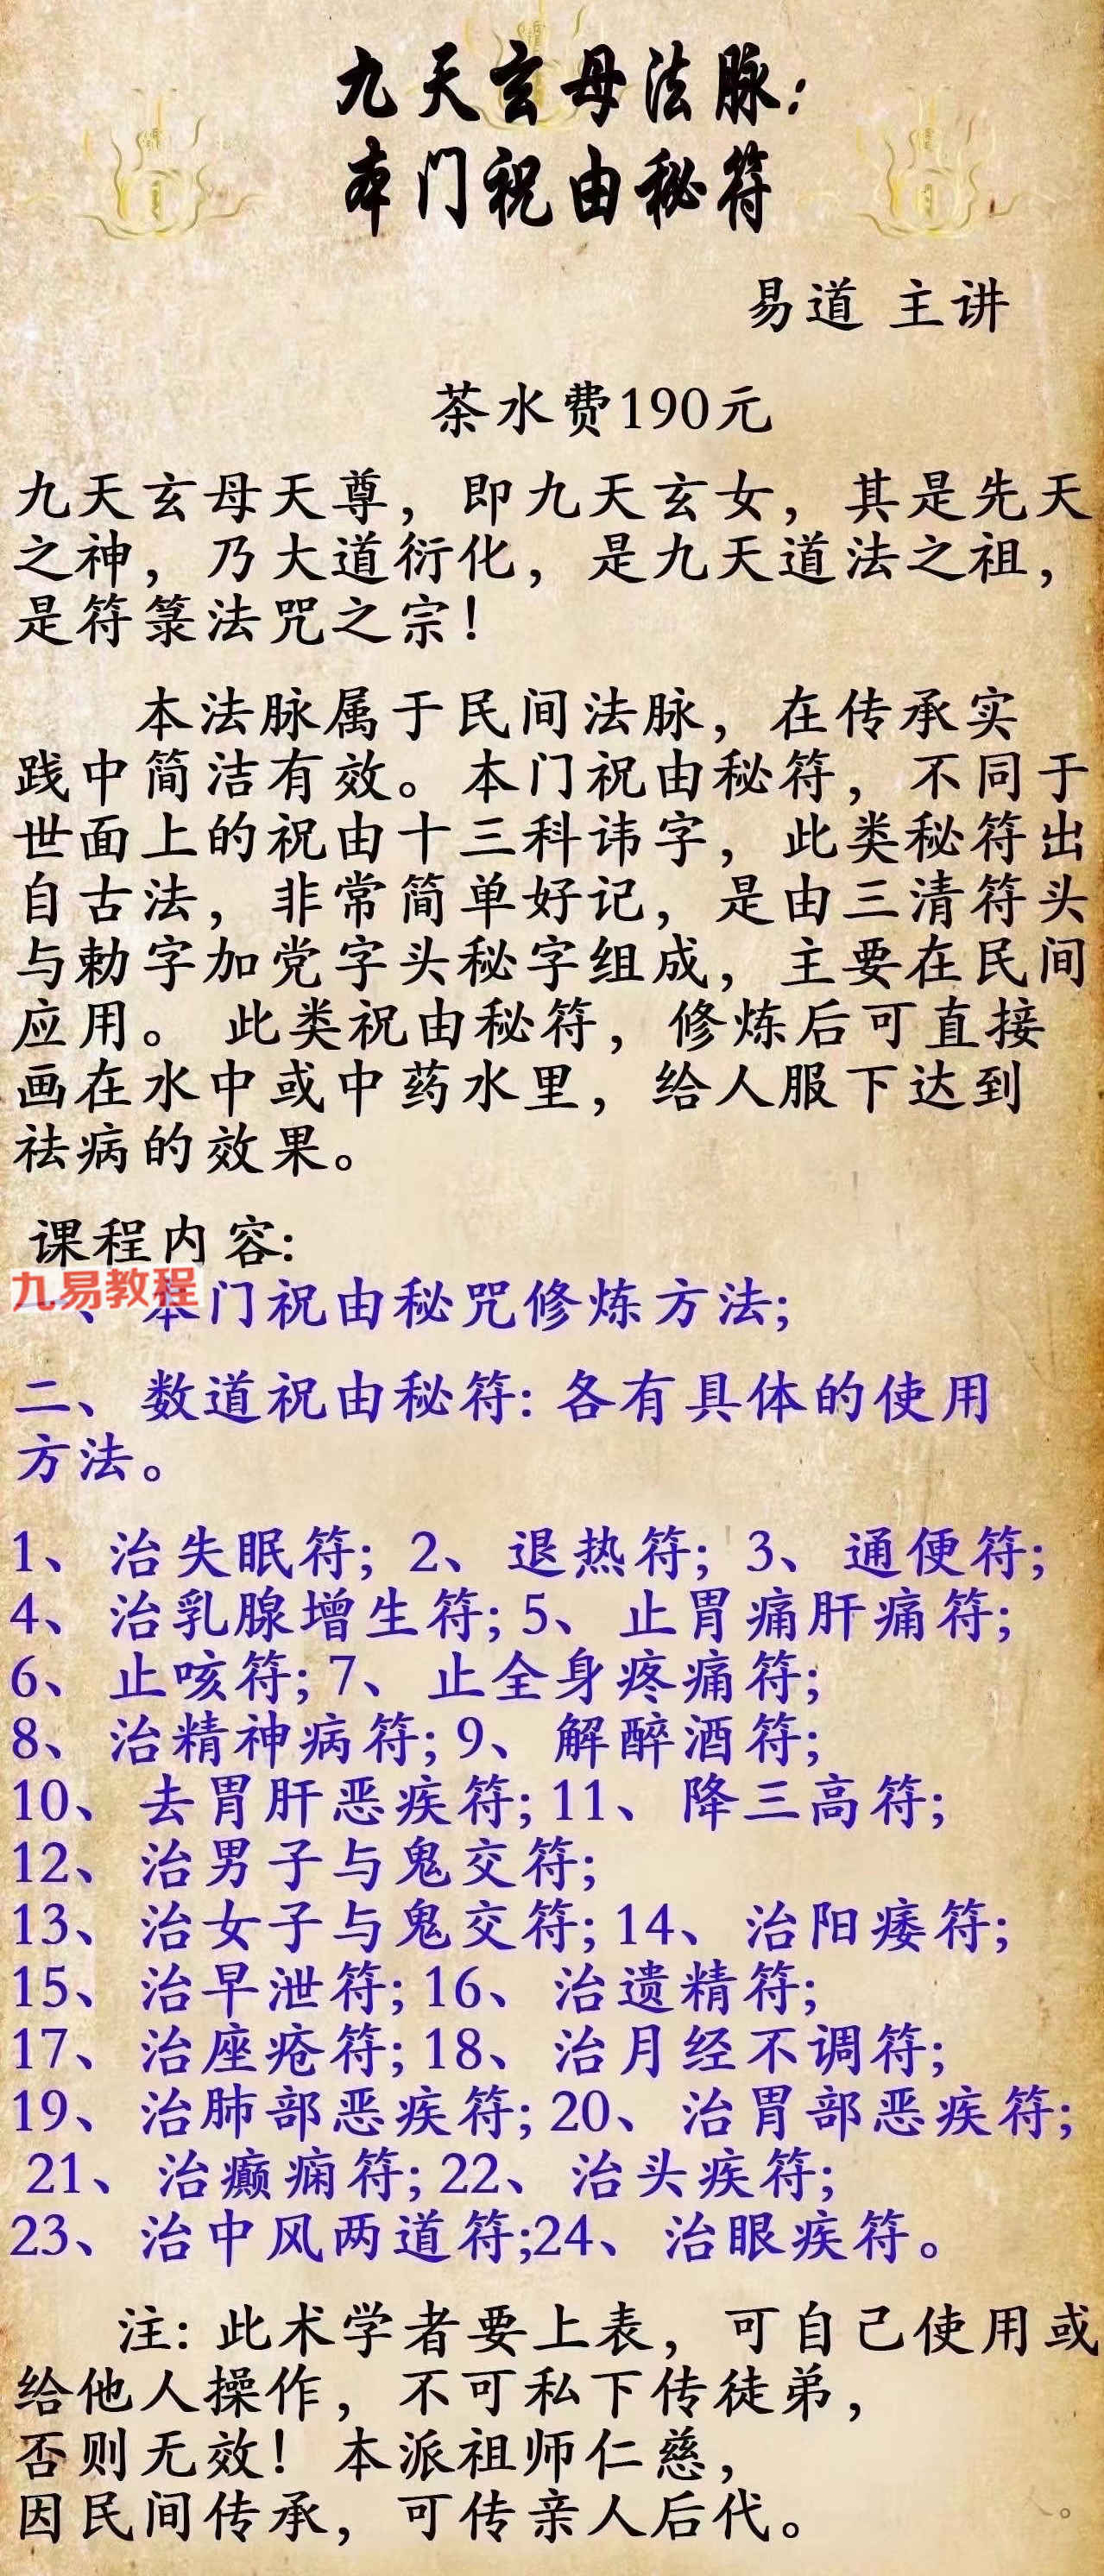 九天玄母法脉:
本门祝由秘符
易道 主讲
茶水费190元
九天玄母天尊，即九天玄女，其是先天
之神，乃大道衍化，是九天道法之祖，
是符箓法咒之宗！
本法脉属于民间法脉，在传承实
践中简洁有效。本门祝由秘符，不同于
世面上的祝由十三科讳字，此类秘符出
自古法，非常简单好记，是由三清符头
与勅字加党字头秘字组成，主要在民间
应用。 此类祝由秘符，修炼后可直接
画在水中或中药水里，给人服下达到
祛病的效果。
课程内容:
九易教程
一、本门祝由秘咒修炼方法;
二、数道祝由秘符: 各有具体的使用
方法。
1、治失眠符; 2、退热符; 3、通便符;
4、治乳腺增生符; 5、止胃痛肝痛符;
6、止咳符; 7、止全身疼痛符;
8、治精神病符; 9、解醉酒符;
10、去胃肝恶疾符; 11、降三高符;
12、治男子与鬼交符;
13、治女子与鬼交符; 14、治阳痿符;
15、治早泄符; 16、治遗精符;
17、治座疮符; 18、治月经不调符;
19、治肺部恶疾符; 20、治胃部恶疾符;
21、治癫痫符; 22、治头疾符;
23、治中风两道符;24、治眼疾符。
注: 此术学者要上表，可自己使用或
给他人操作，不可私下传徒弟，
否则无效！本派祖师仁慈，
因民间传承，可传亲人后代。